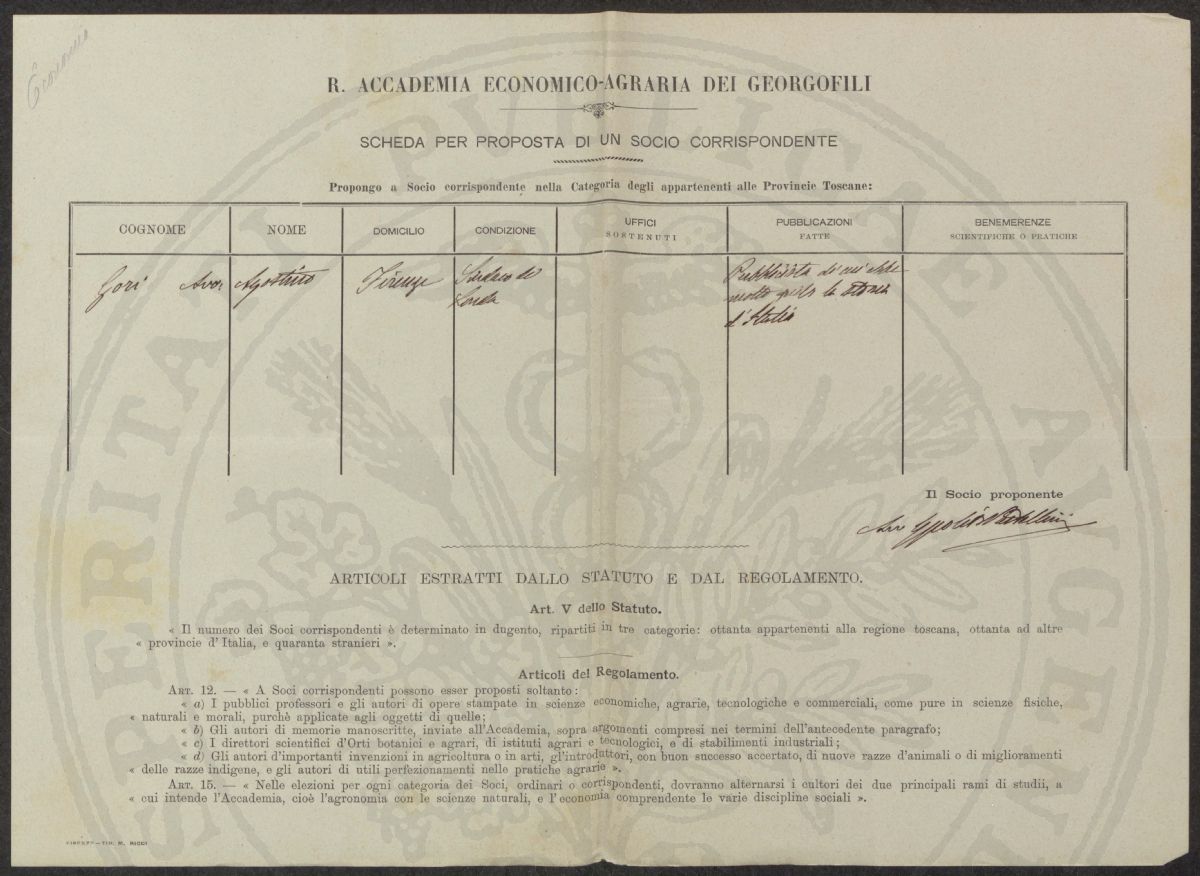 Economia
R. ACCADEMIA ECONOMICO-AGRARIA DEI GEORGOFILI
SCHEDA PER PROPOSTA DI UN SOCIO CORRISPONDENTE
Propongo a Socio corrispondente nella Categoria degli appartenenti alle Provincie Toscane:
COGNOME NOME DOMICILIO CONDIZIONE UFFICI SOSTENUTI PUBBLICAZIONI FATTE BENEMERENZE SCIENTIFICHE O PRATICHE
Gori Avv. Agostino Firenze Sindaco di Pubblicista di cui ebbe
Londa molto grido la storia
d'Italia
Il Socio proponente
Avv
ARTICOLI ESTRATTI DALLO STATUTO E DAL REGOLAMENTO.
Art. V dello Statuto.
« Il numero dei Soci corrispondenti è determinato in dugento, ripartiti in tre categorie: ottanta appartenenti alla regione toscana, ottanta ad altre
« provincie d'Italia, e quaranta stranieri ».
Articoli del Regolamento.
ART. 12. — « A Soci corrispondenti possono esser proposti soltanto:
« a) I pubblici professori e gli autori di opere stampate in scienze economiche, agrarie, tecnologiche e commerciali, come pure in scienze fisiche,
« naturali e morali, purchè applicate agli oggetti di quelle;
« b) Gli autori di memorie manoscritte, inviate all'Accademia, sopra argomenti compresi nei termini dell'antecedente paragrafo;
« c) I direttori scientifici d'Orti botanici e agrari, di istituti agrari e tecnologici, e di stabilimenti industriali;
« d) Gli autori d'importanti invenzioni in agricoltura o in arti, gl'introduttori, con buon successo accertato, di nuove razze d'animali o di miglioramenti
« delle razze indigene, e gli autori di utili perfezionamenti nelle pratiche agrarie ».
ART. 15. — « Nelle elezioni per ogni categoria dei Soci, ordinari o corrispondenti, dovranno alternarsi i cultori dei due principali rami di studii, a
« cui intende l'Accademia, cioè l'agronomia con le scienze naturali, e l'economia comprendente le varie discipline sociali ».
FIRENZE—TIP. M. RICCI
PROSPERITATI PUBLICAE AVGENDAE